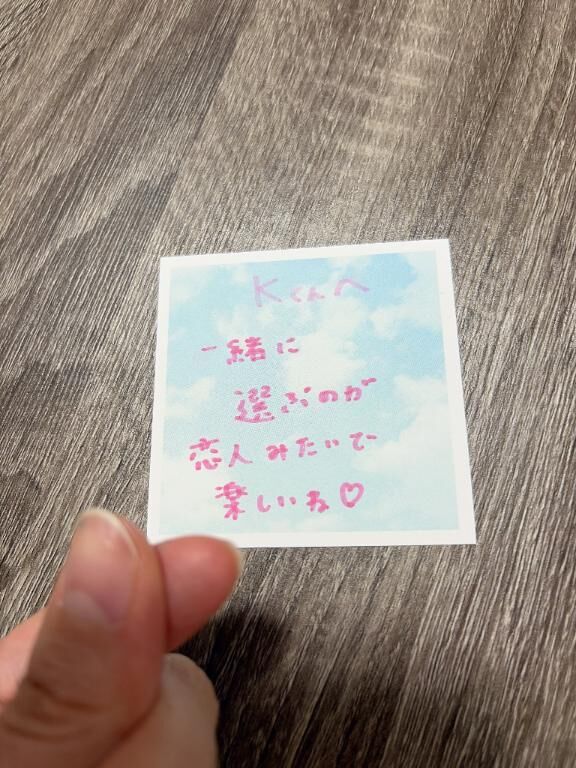 Kくんへ
一緒に
選ぶのが
恋人みたいで
楽しいね♡